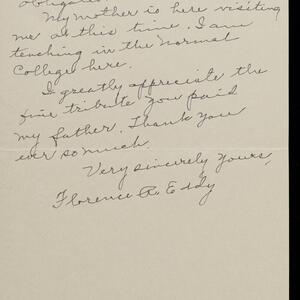 obligated.
My mother is here visiting
me at this time. I am
teaching in the Normal
College here.
I greatly appreciate the
fine tribute you paid
my father. Thank you
ever so much.
Very sincerely yours,
Florence A. Eddy